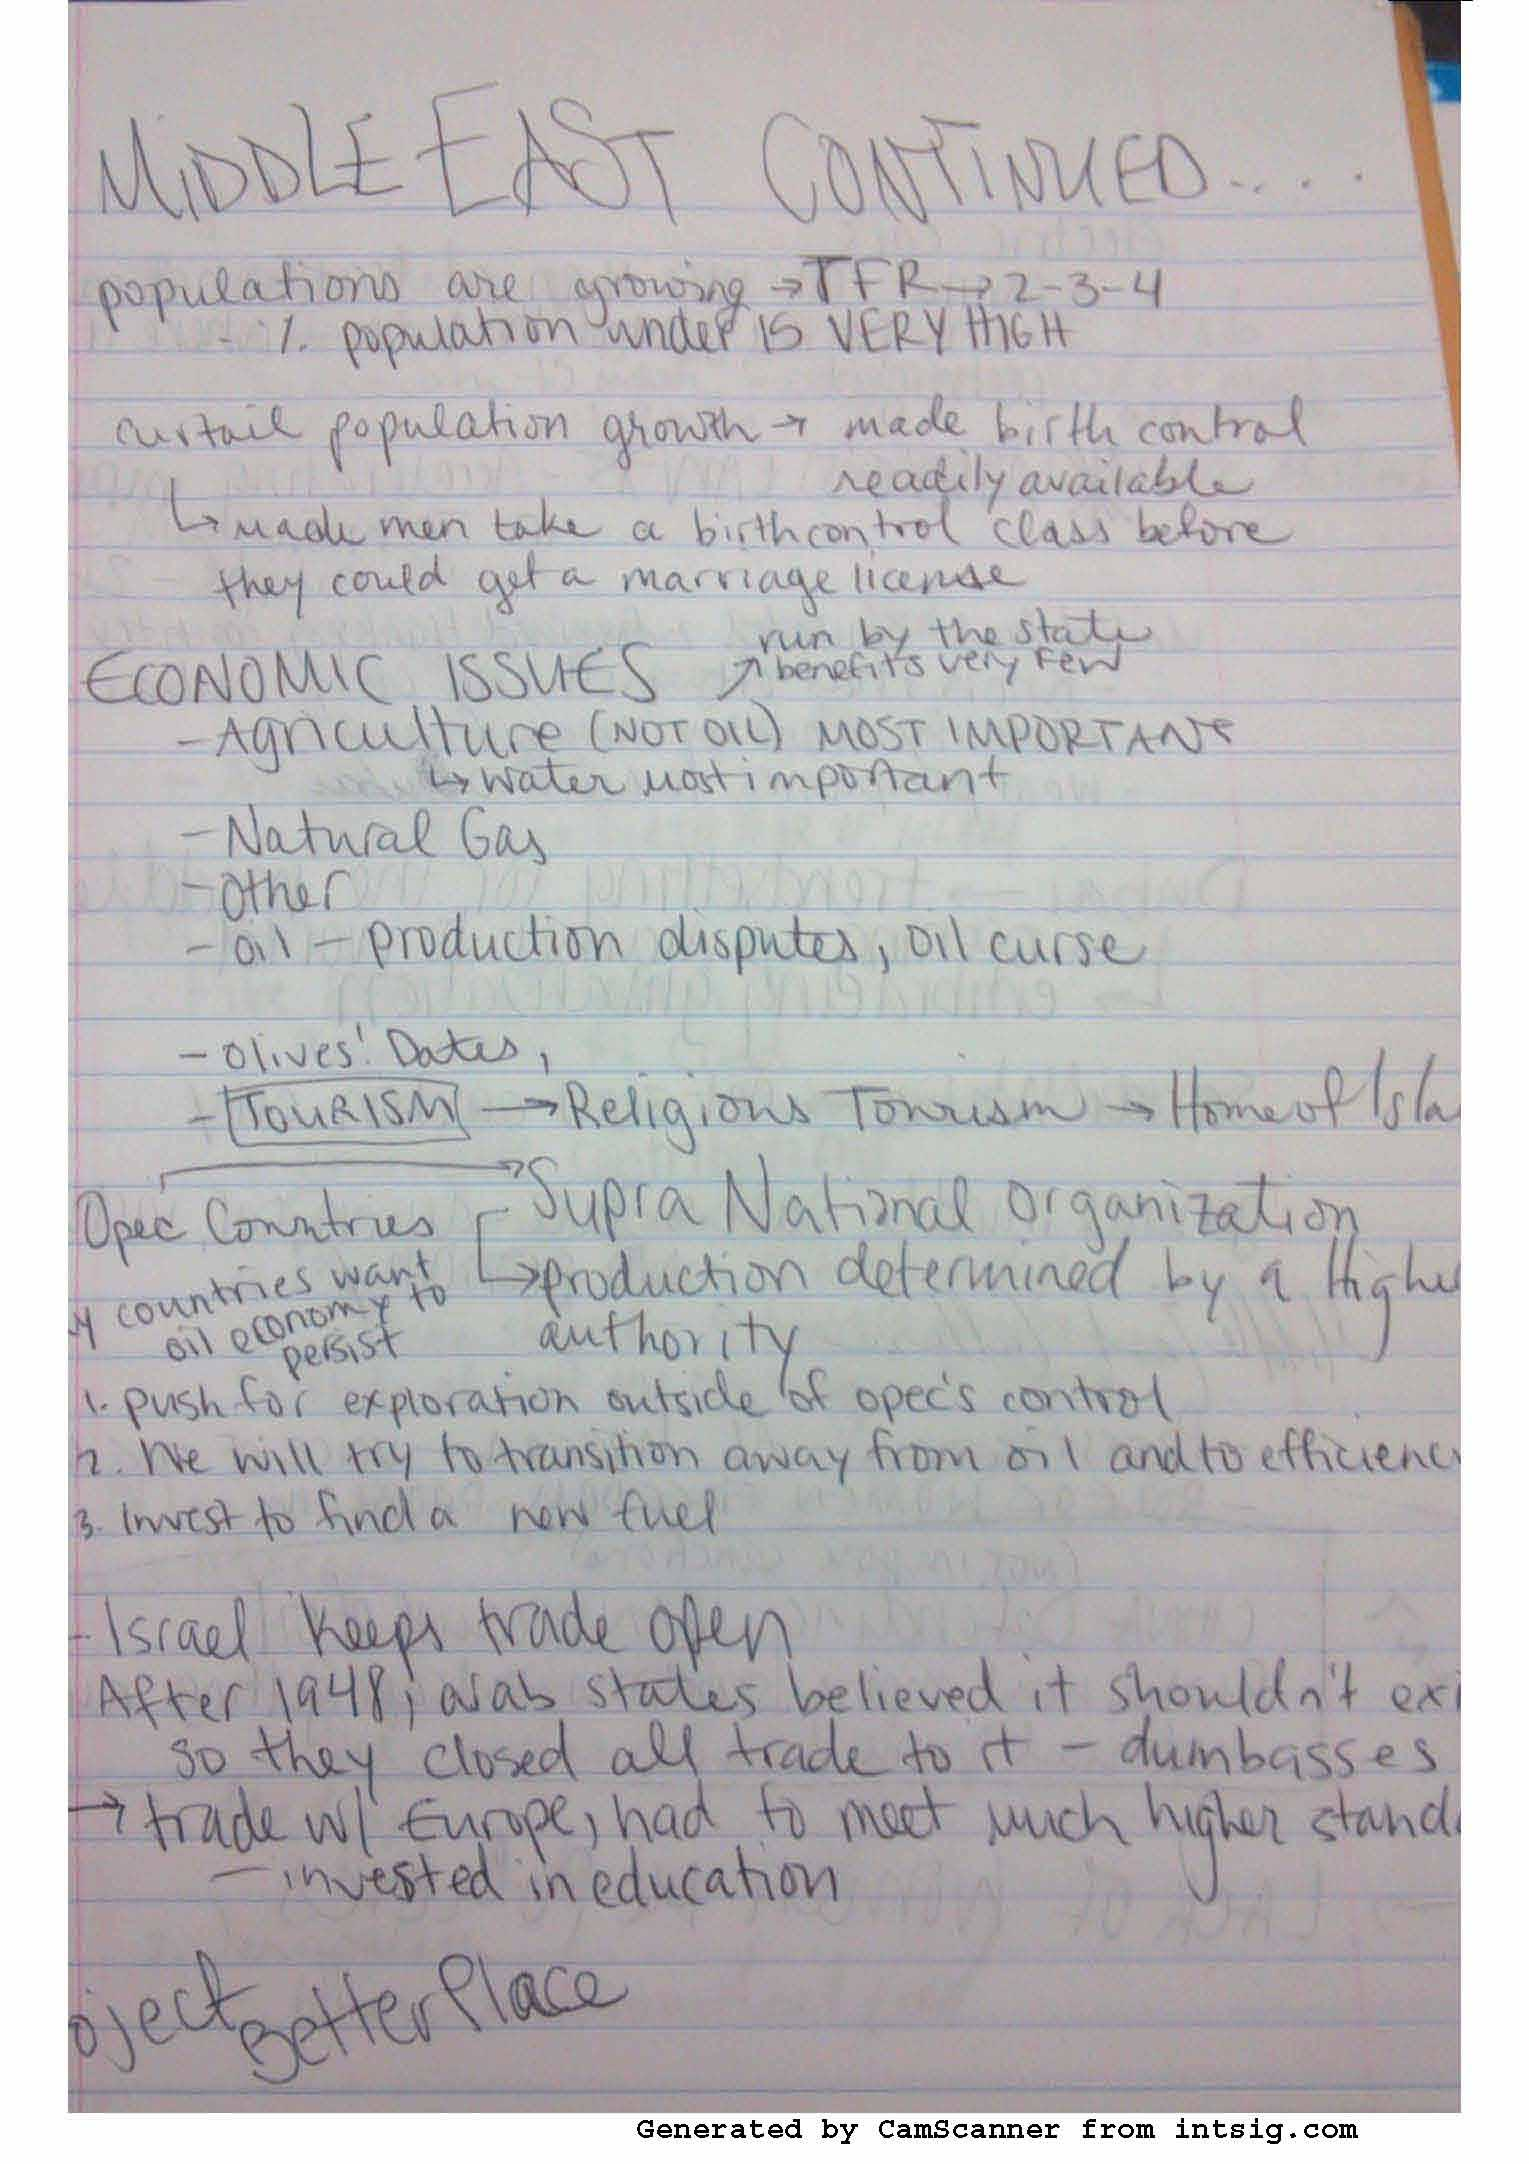 MIDDLE EAST CONTINUED....
populations are growing → TFR → 2-3-4
- % population under 15 VERY HIGH
curtail population growth → made birth control
readily available
↳ made men take a birthcontrol class before
they could get a marriage license
run by the state
ECONOMIC ISSUES ↗ benefits very few
- Agriculture (NOT OIL) MOST IMPORTANT
↳ water most important
- Natural Gas
- Other
- Oil - production disputes, oil curse
- Olives! Dates,
- TOURISM → Religious Tourism → Home of Isla
Opec Countries → Supra National Organization
↳ countries want → production determined by a Highe
oil economy to
persist authority
1. push for exploration outside of opec's control
2. We will try to transition away from oil and to efficienc
3. Invest to find a new fuel
- Israel keeps trade open
After 1948, arab states believed it shouldn't exi
so they closed all trade to it - dumbasses
→ trade w/ Europe, had to meet much higher stand
- invested in education
oject Better Place
Generated by CamScanner from intsig.com